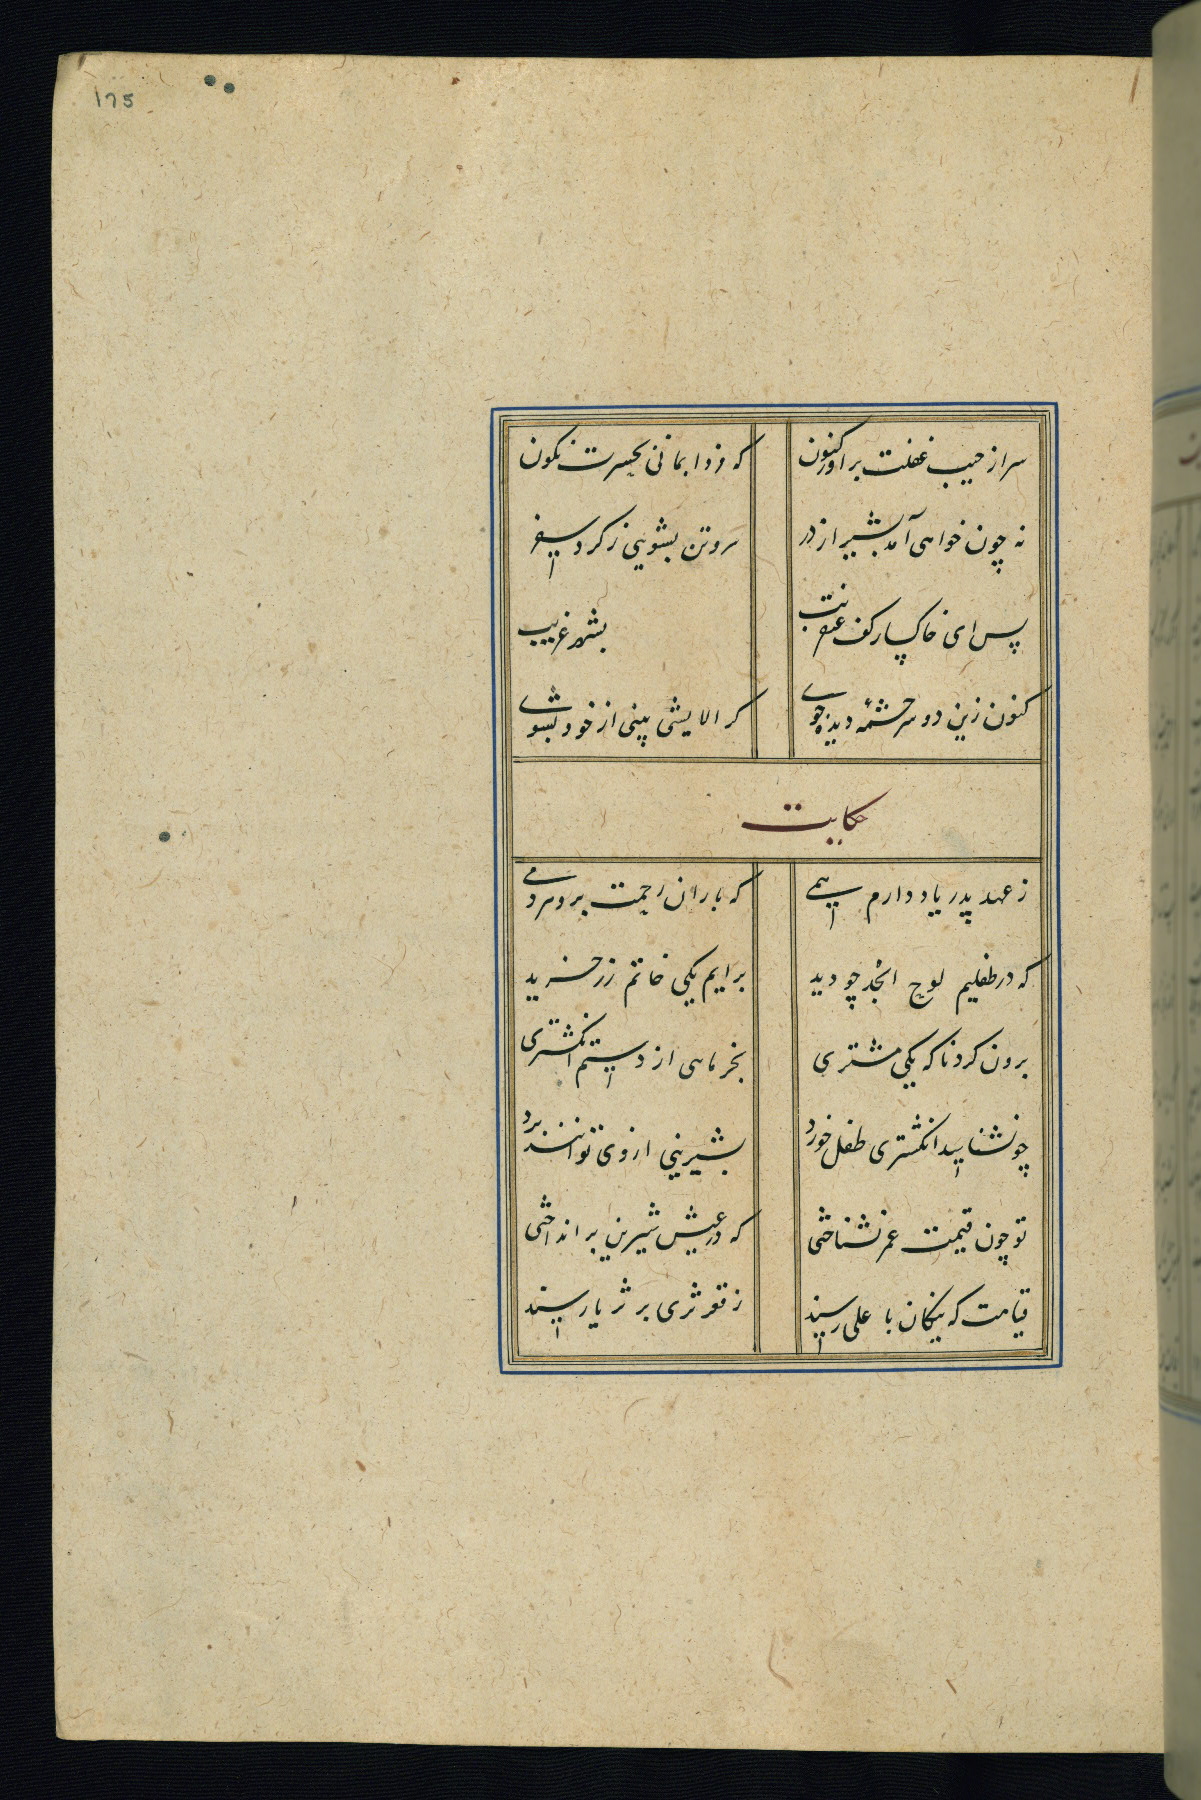 175
سر از جیب غفلت براور کنون که فردا بمانی بحسرت نگون
نه چون خواهی آمد بشیراز در سر و تن بشویی ز کرد سفر
پس ای خاکسار کنه عنقریب بشهر غریب
کنون زین دو سرچشمه دیده جوی کر الایشی بینی از خود بشوی
حکایت
ز عهد پدر یاد دارم همی که باران رحمت برو هر دمی
که در طفلیم لوح ابجد چو دید برایم یکی خاتم زر خرید
برون کرد ناکه یکی مشتری بخرمایی از دستم انکشتری
چو نشناسد انکشتری طفل خورد بشیرینی از وی توانند برد
تو چون قیمت عمر نشناختی که در عیش شیرین بر انداختی
قیامت که نیکان با علی رسند ز قعر ثری بر ثریا رسند